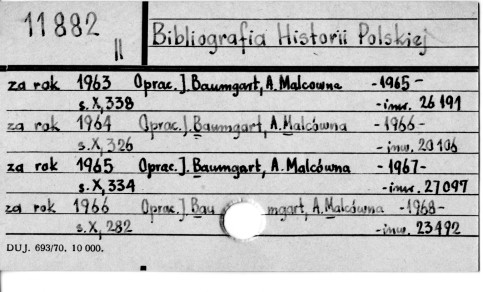 11882
II
Bibliografia Historii Polskiej
za rok 1963 Oprac. J. Baumgart, A. Malcowna -1965-
s. X, 338 -inw. 26191
za rok 1964 Oprac. J. Baumgart, A. Malcówna -1966-
s. X, 326 -inw. 20106
za rok 1965 Oprac. J. Baumgart, A. Malcówna -1967-
s. X, 334 -inw. 27097
za rok 1966 Oprac. J. Bau mgart, A. Malcówna -1968-
s. X, 282 -inw. 23492
DUJ. 693/70. 10 000.